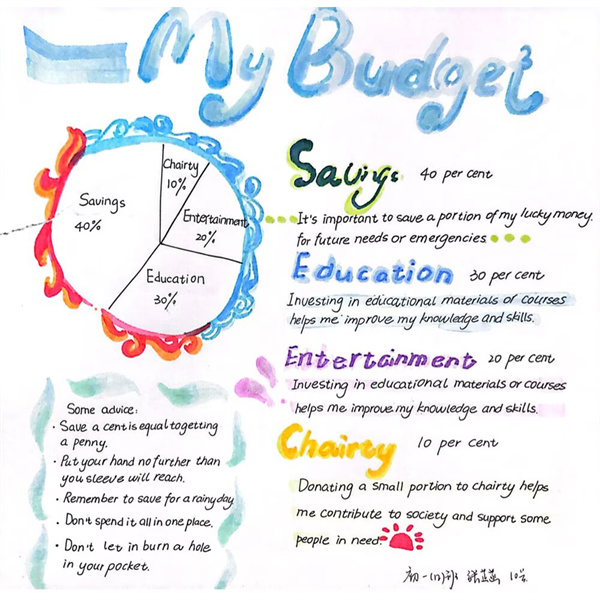 My Budget
Chairty
10%
Savings
40%
Entertainment
20%
Education
30%
Savings 40 per cent
It's important to save a portion of my lucky money.
for future needs or emergencies
Education 30 per cent
Investing in educational materials of courses
helps me improve my knowledge and skills.
Entertainment 20 per cent
Investing in educational materials or courses
helps me improve my knowledge and skills.
Chairty 10 per cent
Donating a small portion to chairty helps
me contribute to society and support some
people in need.
Some advice:
· Save a cent is equal to getting
a penny.
· Put your hand no further than
you sleeve will reach.
· Remember to save for a rainy day
· Don't spend it all in one place.
· Don't let in burn a hole
in your pocket.
初一